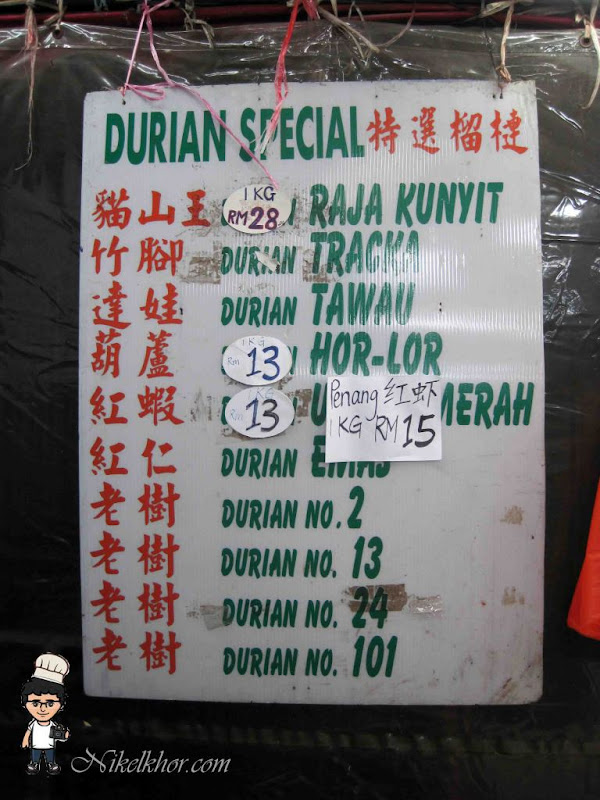 DURIAN SPECIAL 特選榴槤
貓山王 1KG RM 28 RAJA KUNYIT
竹腳 DURIAN TRACKA
達娃 DURIAN TAWAU
葫蘆 1KG Rm 13 HOR-LOR
紅蝦 Rm 13 MERAH
Penang 红虾
1KG RM 15
紅仁 DURIAN EMAS
老樹 DURIAN NO. 2
老樹 DURIAN NO. 13
老樹 DURIAN NO. 24
老樹 DURIAN NO. 101
Nikelkhor.com